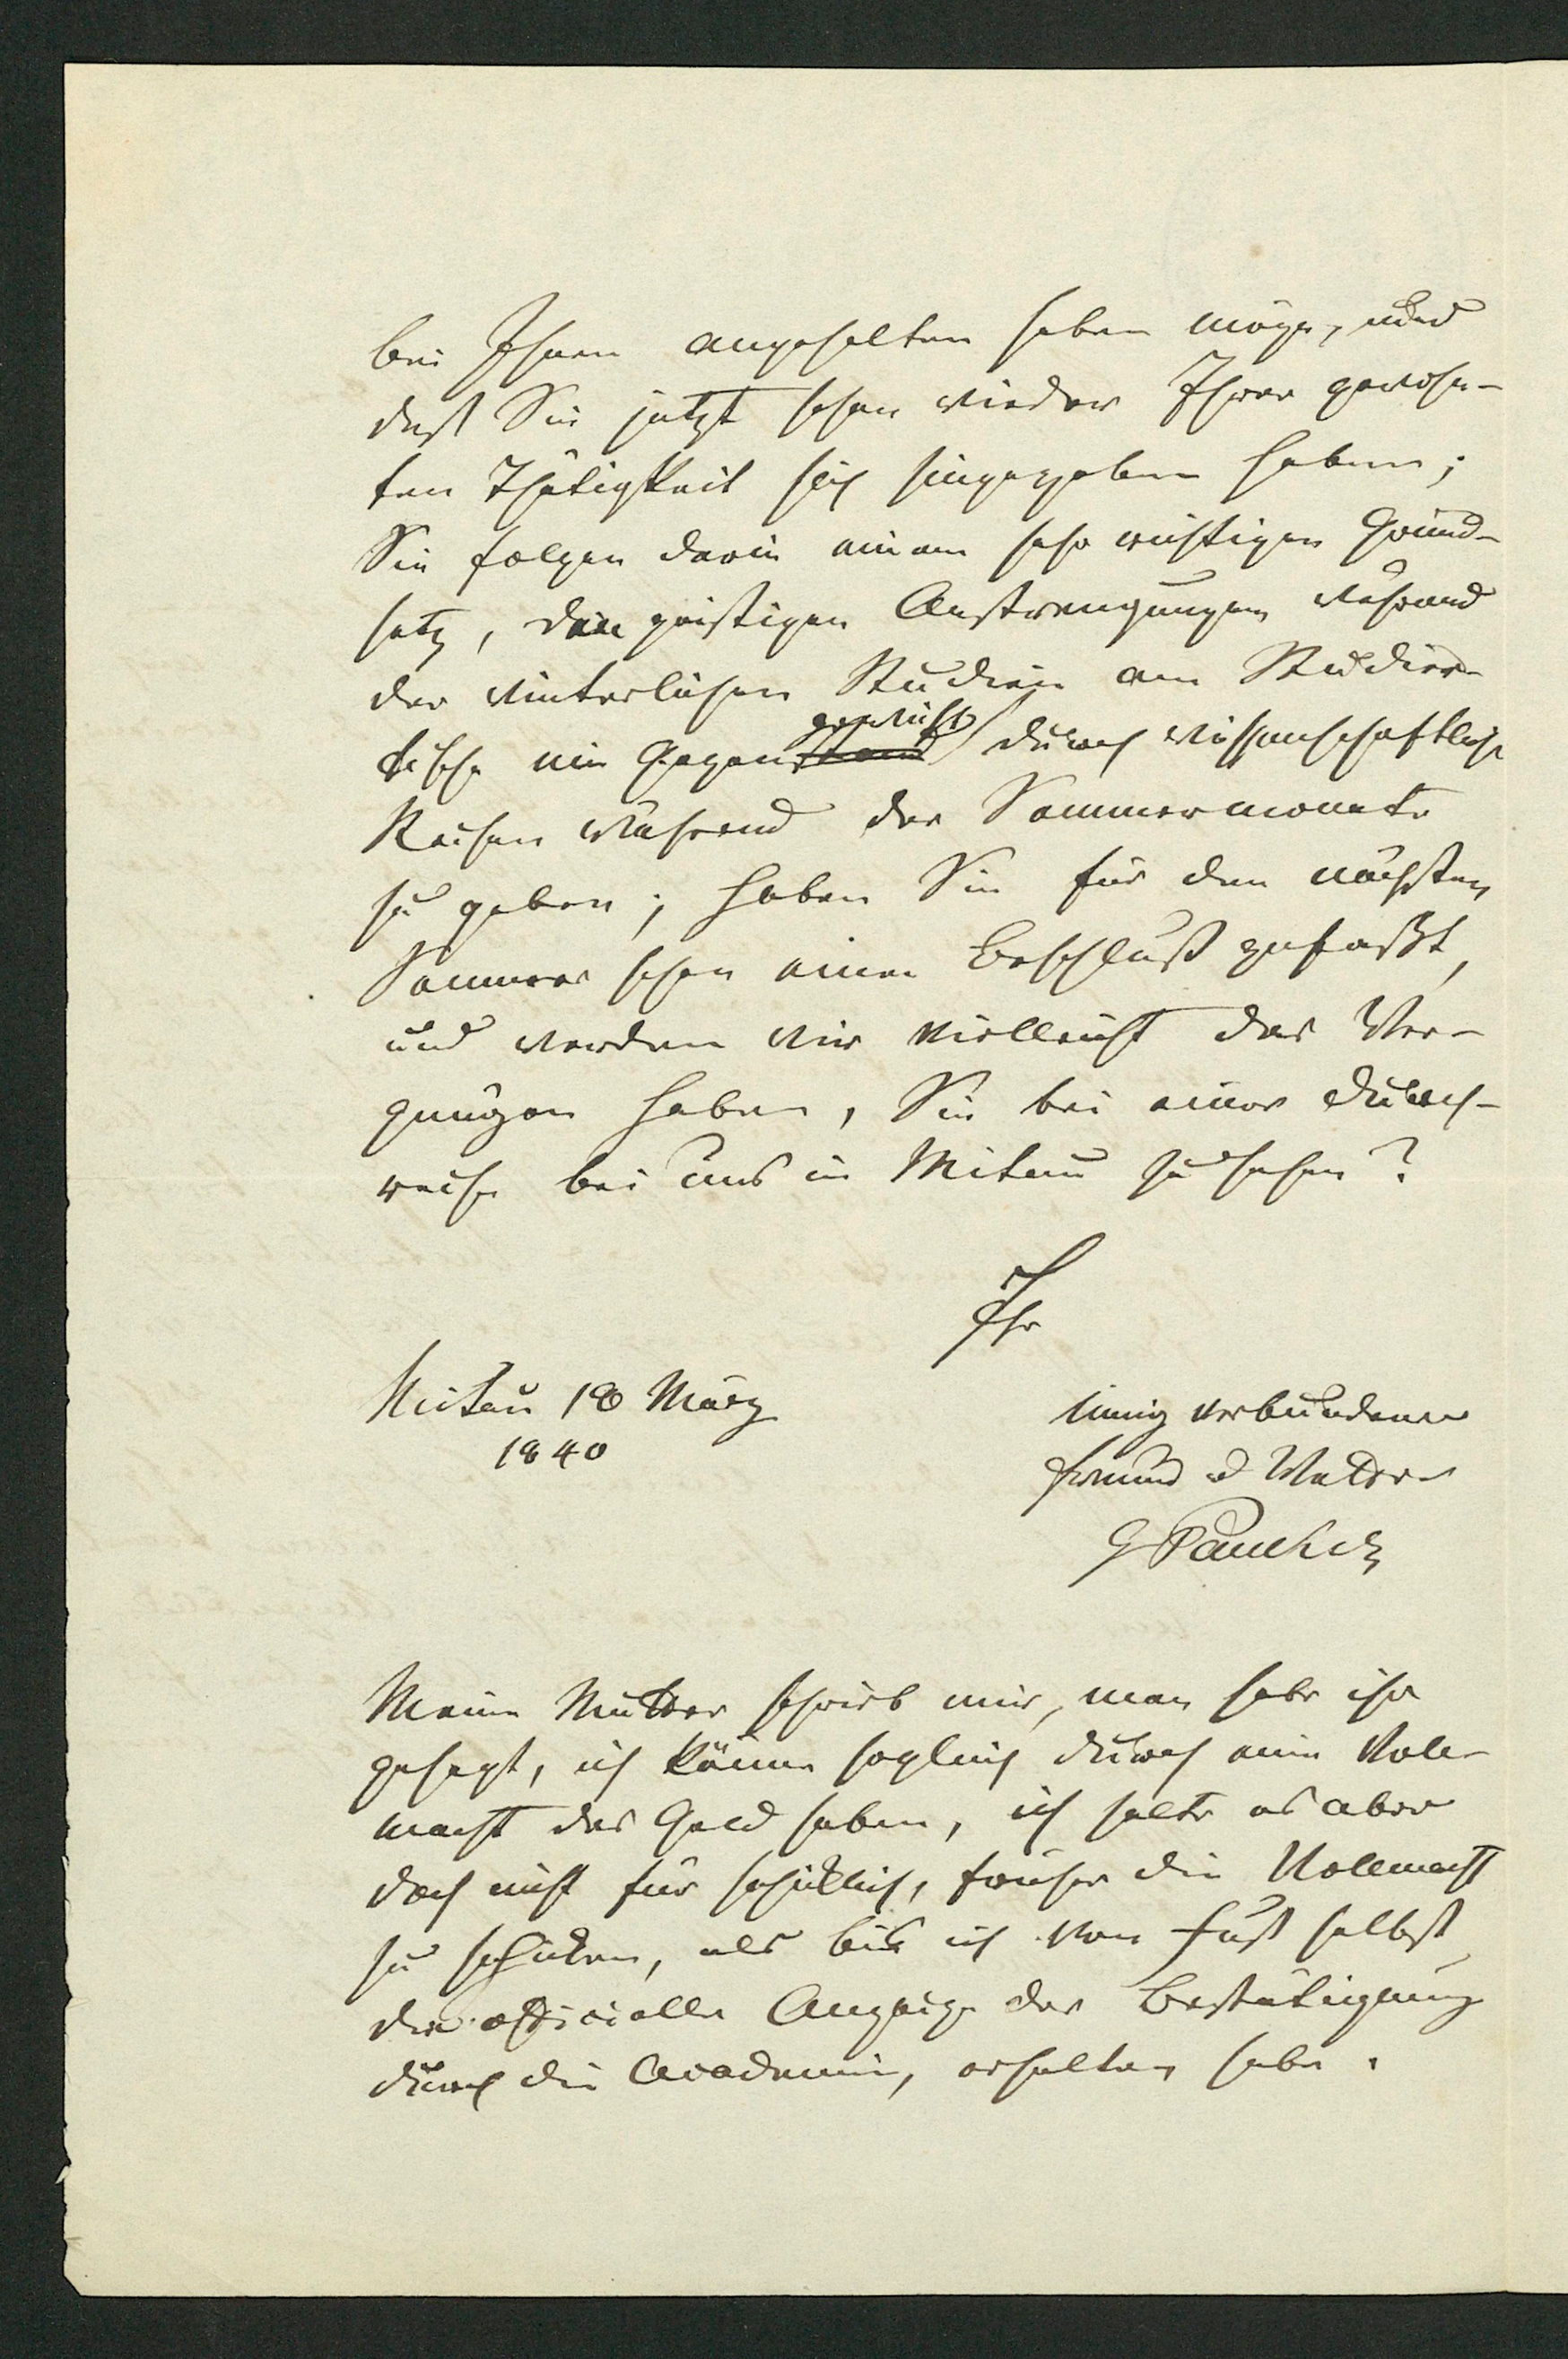 bei Ihnen angehalten haben möge, und
daß Sie jetzt schon wieder Ihrer gewohn-
ten Thätigkeit sich hingegeben haben;
Sie folgen darin einem sehr richtigen Grund-
satz, den geistigen Anstrengungen während
der winterlichen Studien am Studier-
tische ein Gegengewicht durch wissenschaftliche
Reisen während der Sommermonate
zu geben; haben Sie für den nächsten
Sommer schon einen Beschluß gefaßt,
und werden wir vielleicht das Ver-
gnügen haben, Sie bei einer Durch-
reise bei uns in Mitau zu sehen?
Ihr
Mitau 18 März
1840
innig verbundener
Freund u Vetter
G Paucker
Meine Mutter schrieb mir, man habe ihr
gesagt, ich könne sogleich durch eine Voll-
macht das Geld haben, ich halte es aber
doch nicht für schicklich, früher die Vollmacht
zu schicken, als bis ich von Fuß selbst
die officielle Anzeige der Bestätigung
durch die Academie, erhalten habe.